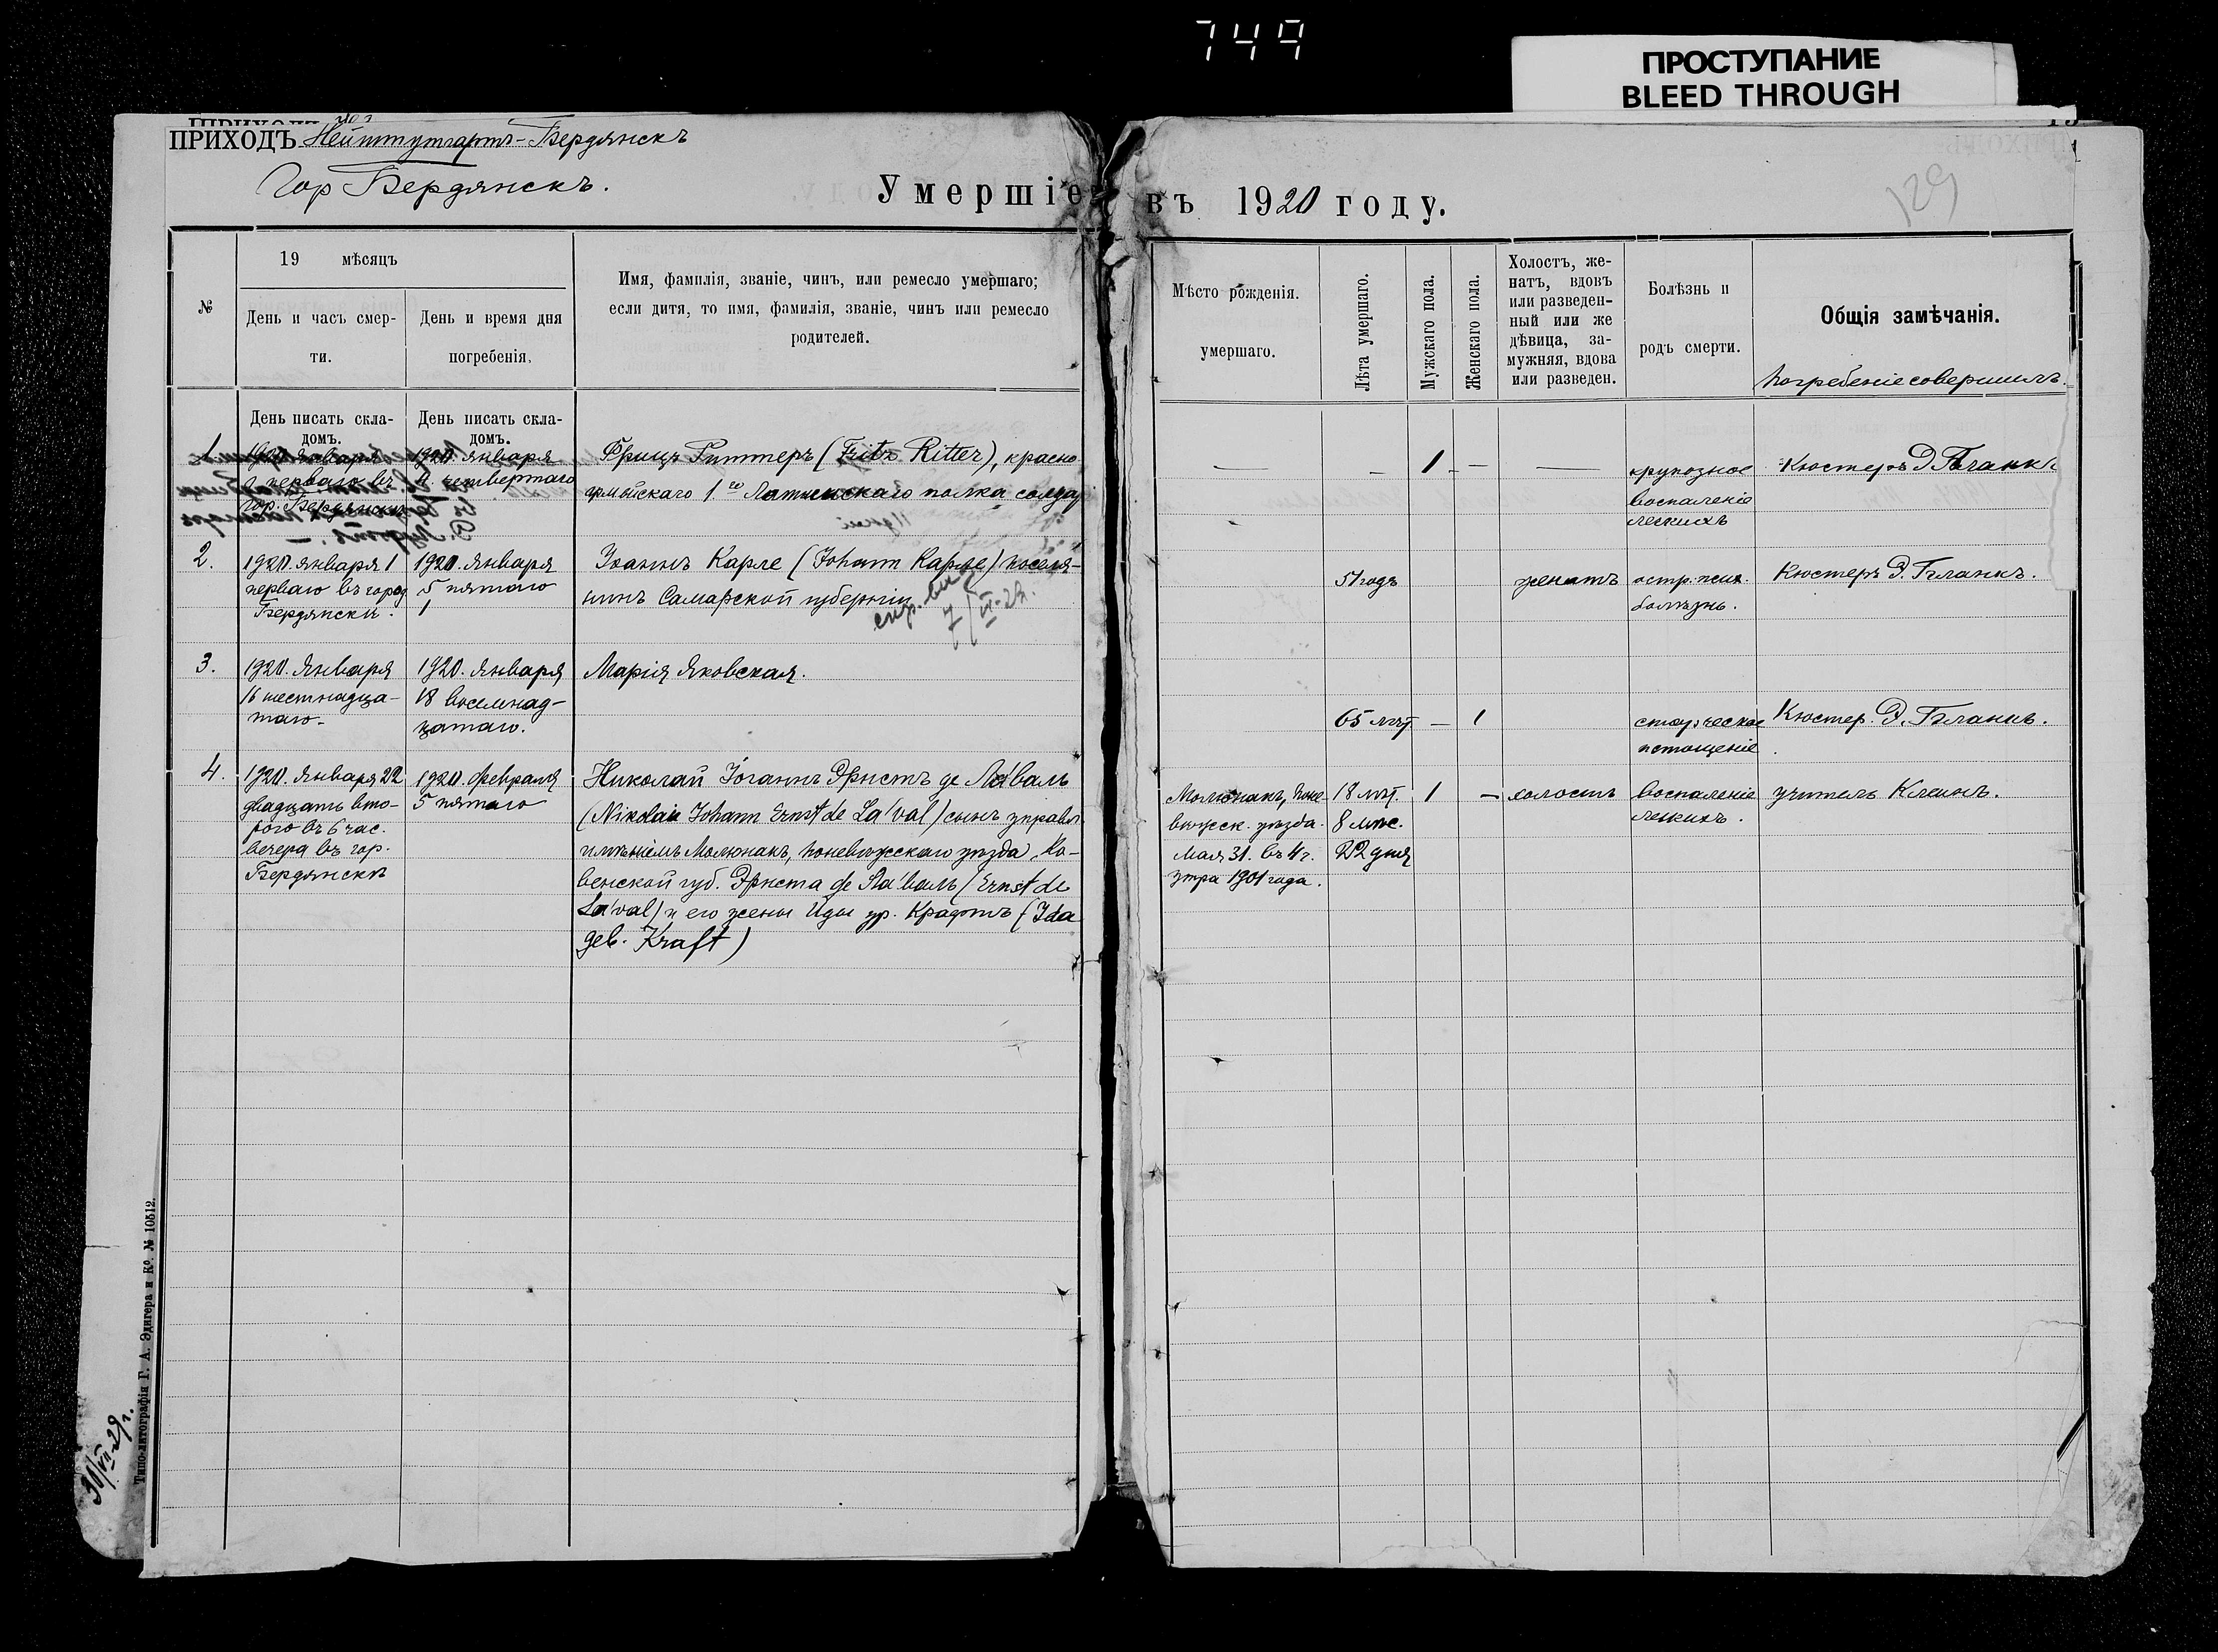 749
ПРОСТУПАНИЕ
BLEED THROUGH
ПРИХОДЪ Нейштутгартъ-Бердянскъ
Гор Бердянскъ.
Умершіе въ 1920 году.
129
№
19 мѣсяцъ
День и часъ смер-
ти.
День и время дня
погребенія,
Имя, фамилія, званіе, чинъ, или ремесло умершаго;
если дитя, то имя, фамилія, званіе, чинъ или ремесло
родителей.
Мѣсто рожденія.
умершаго.
Лѣта умершаго.
Мужскаго пола.
Женскаго пола.
Холостъ, же-
натъ, вдовъ
или разведен-
ный или же
дѣвица, за-
мужняя, вдова
или разведен.
Болѣзнь и
родъ смерти.
Общія замѣчанія.
Погребеніе совершилъ.
День писать скла-
домъ.
День писать скла-
домъ.
1.
1920 января
1 перваго въ
гор. Бердянскѣ
1920. января
4. четвертаго
Фрицъ Риттеръ (Fritz Ritter), красно
армейскаго 1.го Латышскаго полка солдат
—
—
1
—
—
крупозное
воспаленіе
легкихъ
Кюстеръ Э. Бланкъ
2.
1920. января 1
перваго въ город
Бердянскѣ.
1920. января
5 пятаго
Іоаннъ Карле (Johann Карле) поселя-
нинъ Самарской губерніи
7/VI-22.
51 годъ
женатъ
остр. псих.
болѣзнь.
Кюстеръ Э. Бланкъ.
3.
1920. Января
16 шестнадца-
таго-
1920. Января
18 восемнад-
цатаго.
Марія Яковская.
65 лѣт
—
1
старческое
истощеніе
Кюстер. Э. Бланкъ.
4.
1920. Января 22
двадцать вто-
рого въ 6 час.
вечера въ гор.
Бердянскѣ
1920. Февраля
5 пятаго
Николай Іоганнъ Эрнстъ де Ла'валь
(Nikolai Johann Ernst de La'val) сынъ управл
имѣніемъ Молюнакъ, Поневѣжскаго уѣзда, Ко-
венской губ. Эрнста де Ла'валь (Ernst de
La'val) и его жены Иды ур. Крафтъ (Ida
geb. Kraft)
Молюнакъ, Поне-
вѣжск. уѣзда.
Мая 31. въ 4 г.
утра 1901 года.
18 лѣт.
8 мѣс.
22 дня
1
—
холостъ
воспаленіе
легкихъ.
учитель Клеинъ.
Типо-литографія Г. А. Эдигера и Ко. № 10512.